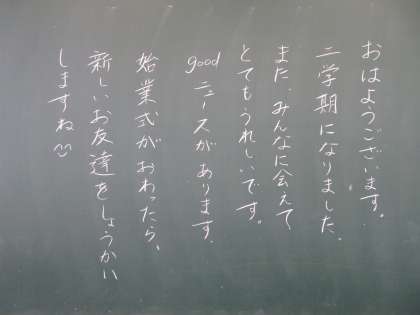 おはようございます。
二学期になりました。
また、みんなに会えて
とてもうれしいです。
goodニュースがあります。
始業式がおわったら、
新しいお友達をしょうかい
しますね